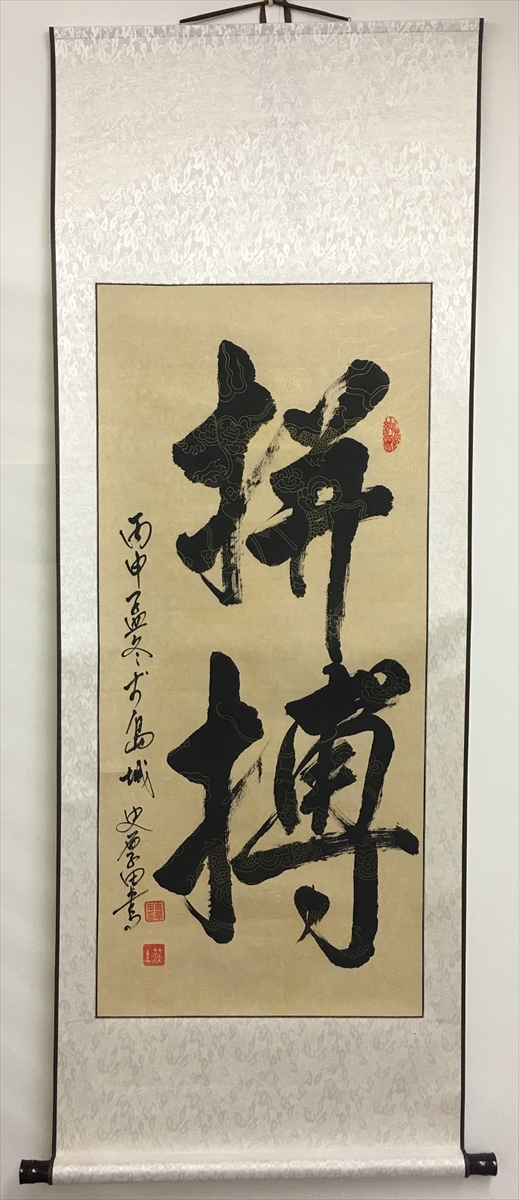 拼搏
丙申孟冬于島城 史學田書